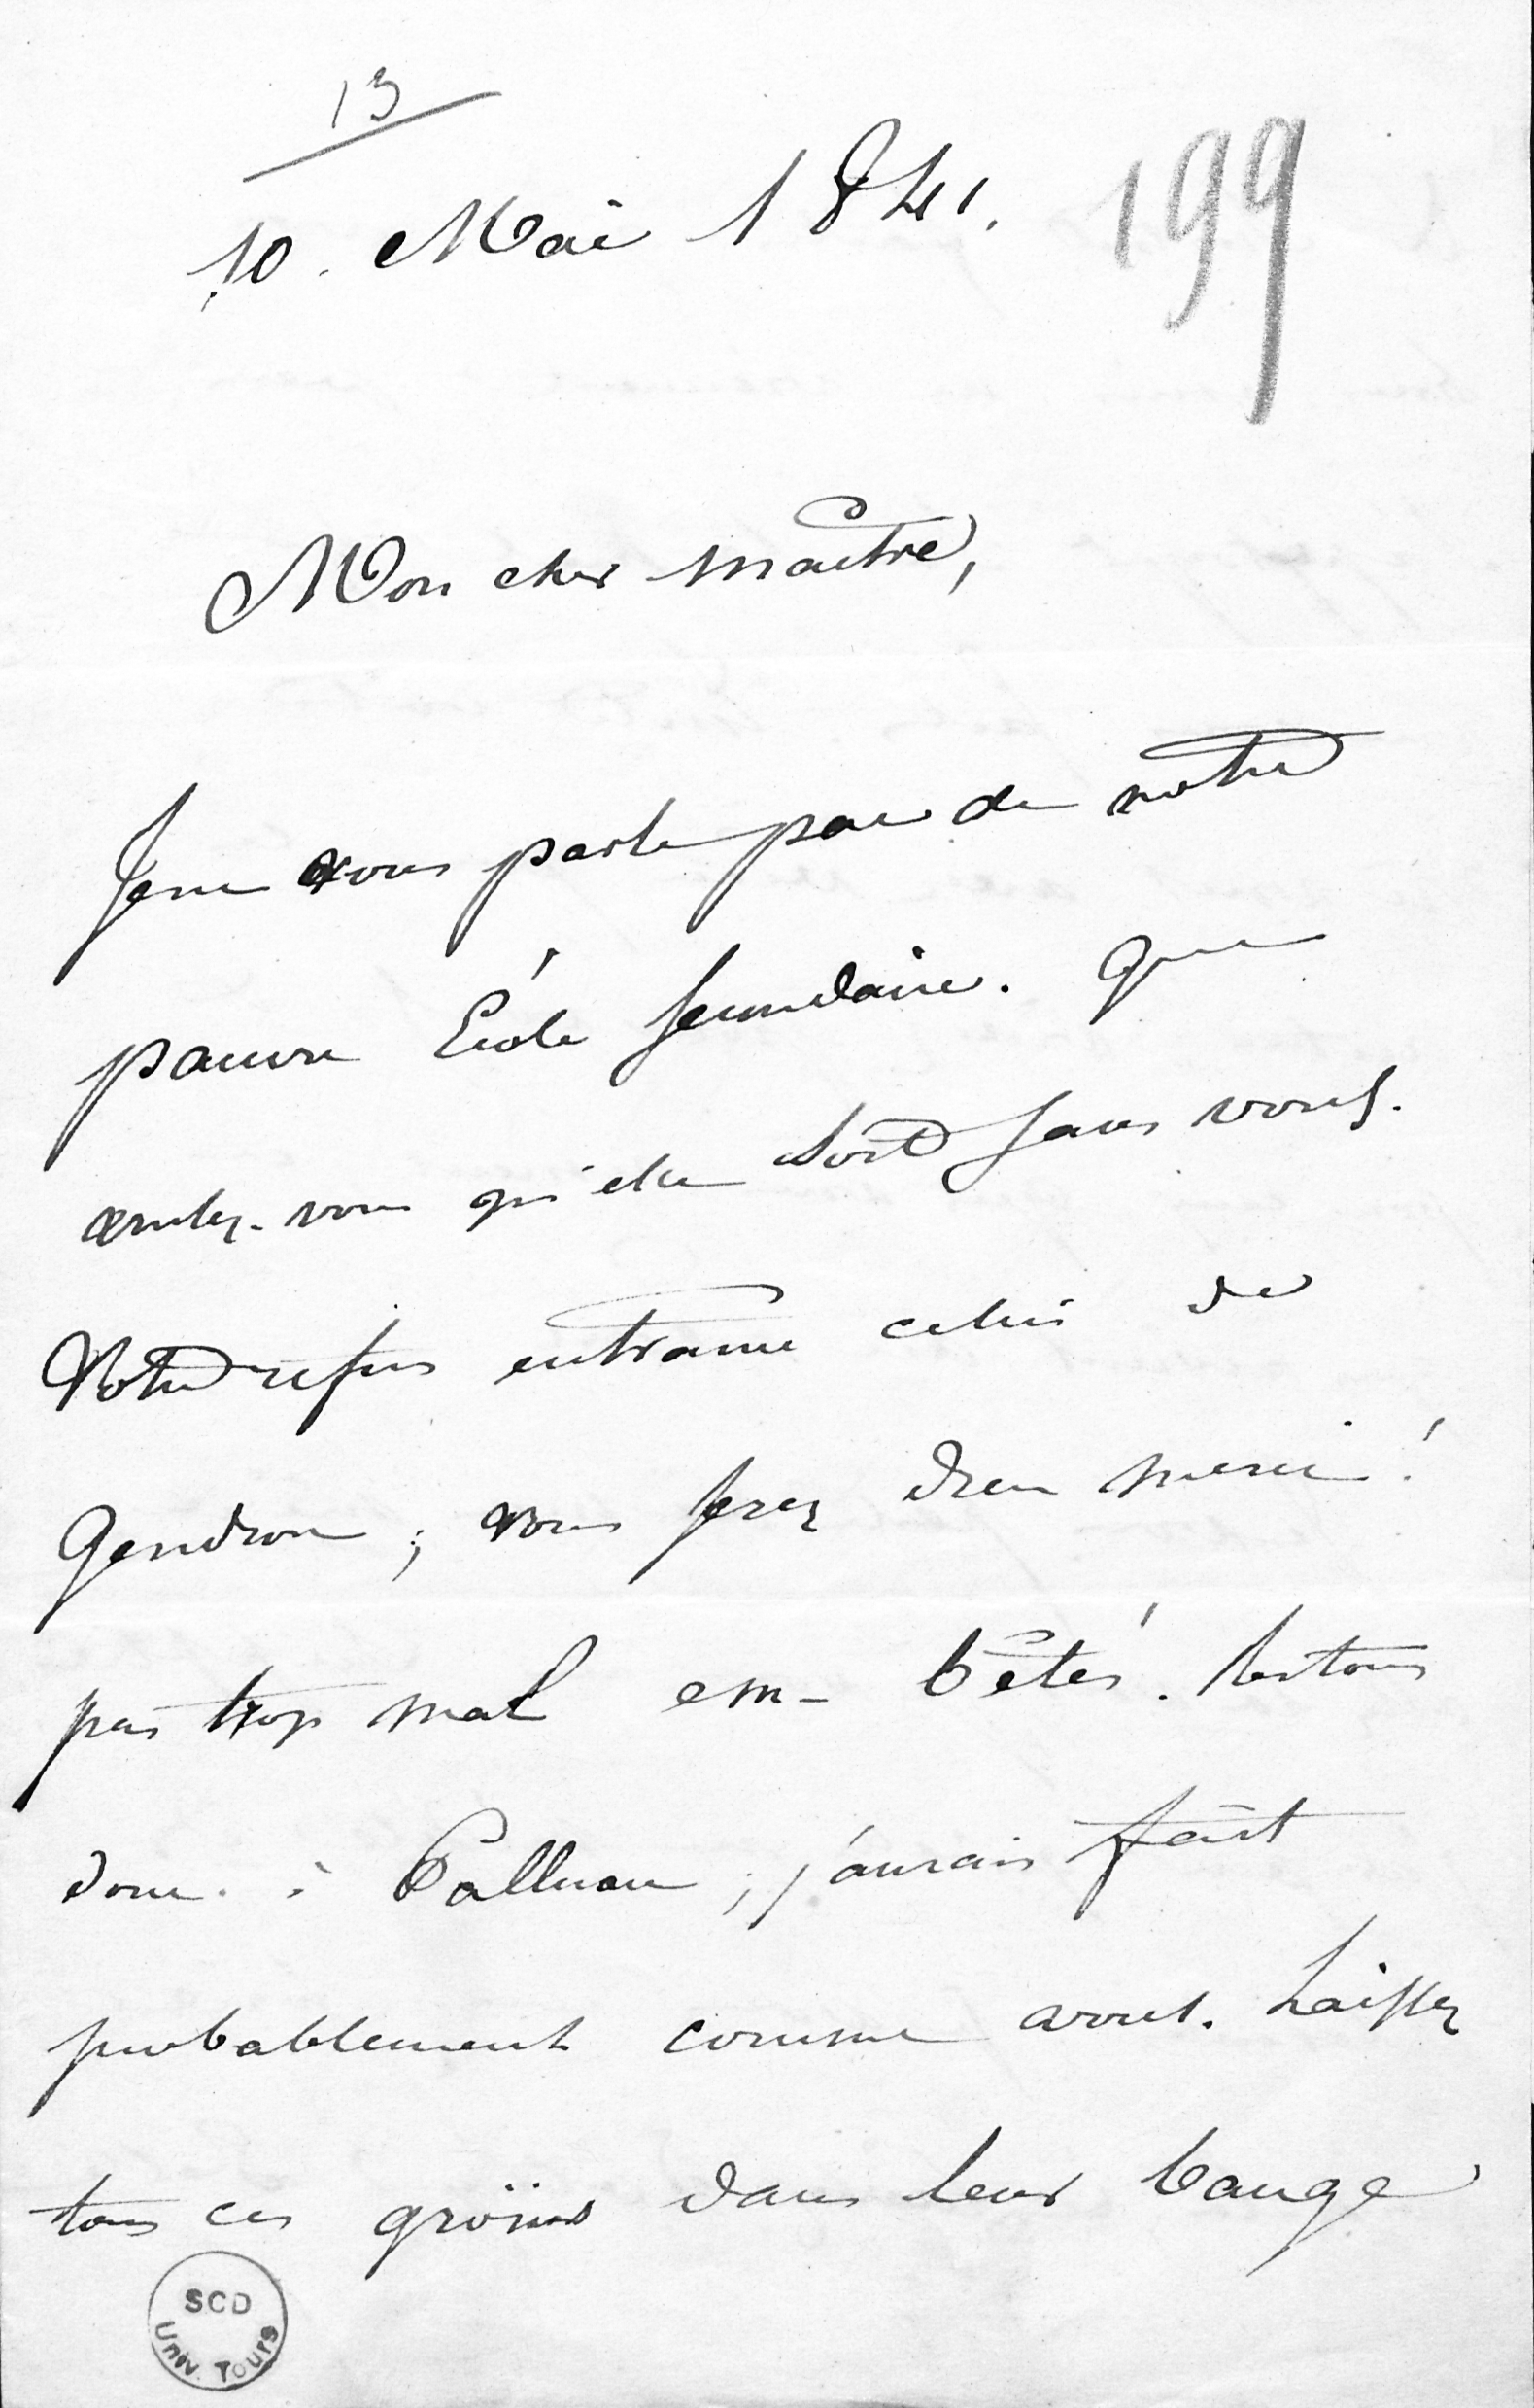 13
10. Mai 1841.
199
Mon cher maître,
Je ne vous parle pas de notre
pauvre École secondaire. Que
voulez-vous qu'elle soit sans vous.
Votre refus entraine celui de
Gendron ; vous serez dieu merci !
pas trop mal em- bêtés. Restons
donc à Palluau ; j'aurais fait
probablement comme vous. Laissez
tous ces groïns dans leur bauge
SCD
Univ. Tours